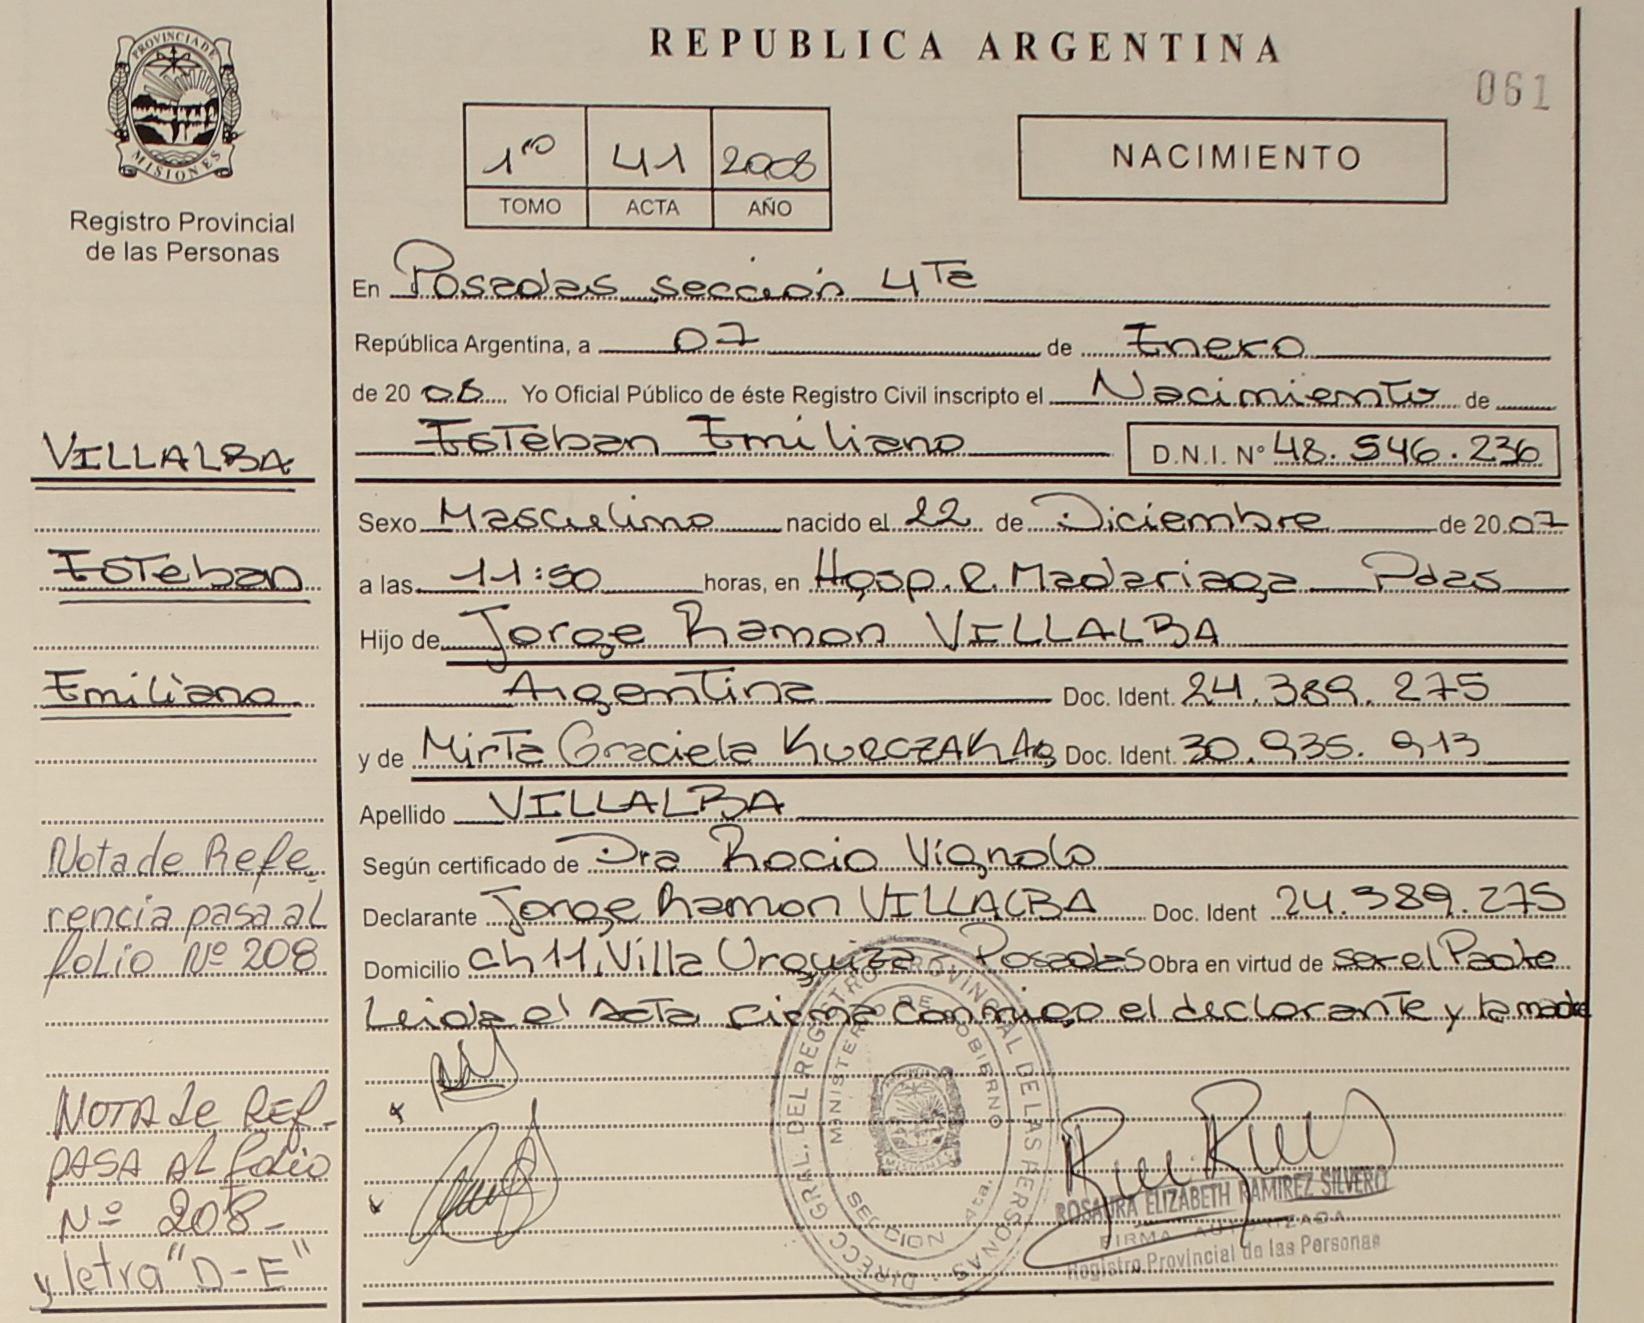 PROVINCIA DE
MISIONES
Registro Provincial
de las Personas
REPUBLICA ARGENTINA
061
1ro 41 2008
TOMO ACTA AÑO
NACIMIENTO
En Posadas sección 4Ta
República Argentina, a 07 de Enero
de 20 08 Yo Oficial Público de éste Registro Civil inscripto el Nacimiento de
Esteban Emiliano D.N.I. N° 48.546.236
Sexo Masculino nacido el 22 de Diciembre de 20 07
a las 11:50 horas, en Hosp. R. Madariaga Pdas
Hijo de Jorge Ramon VILLALBA
Argentina Doc. Ident. 24.389.275
y de Mirta Graciela KURCZAK Ag Doc. Ident. 30.935.913
Apellido VILLALBA
Según certificado de Dra Rocio Vignolo
Declarante Jorge Ramon VILLALBA Doc. Ident 24.389.275
Domicilio ch 11, Villa Urquiza - Posadas Obra en virtud de ser el Padre
Leida el Acta firma conmigo el declarante y la madre
VILLALBA
Esteban
Emiliano
Nota de Refe
rencia pasa al
folio Nº 208
NOTA de REF-
PASA AL folio
Nº 208-
y letra "D-E"
DIRECC. GRAL. DEL REGISTRO PROVINCIAL DE LAS PERSONAS
MINISTERIO DE GOBIERNO
SECCION 4ta.
MISIONES
ROSAURA ELIZABETH RAMIREZ SILVERO
FIRMA AUTORIZADA
Registro Provincial de las Personas